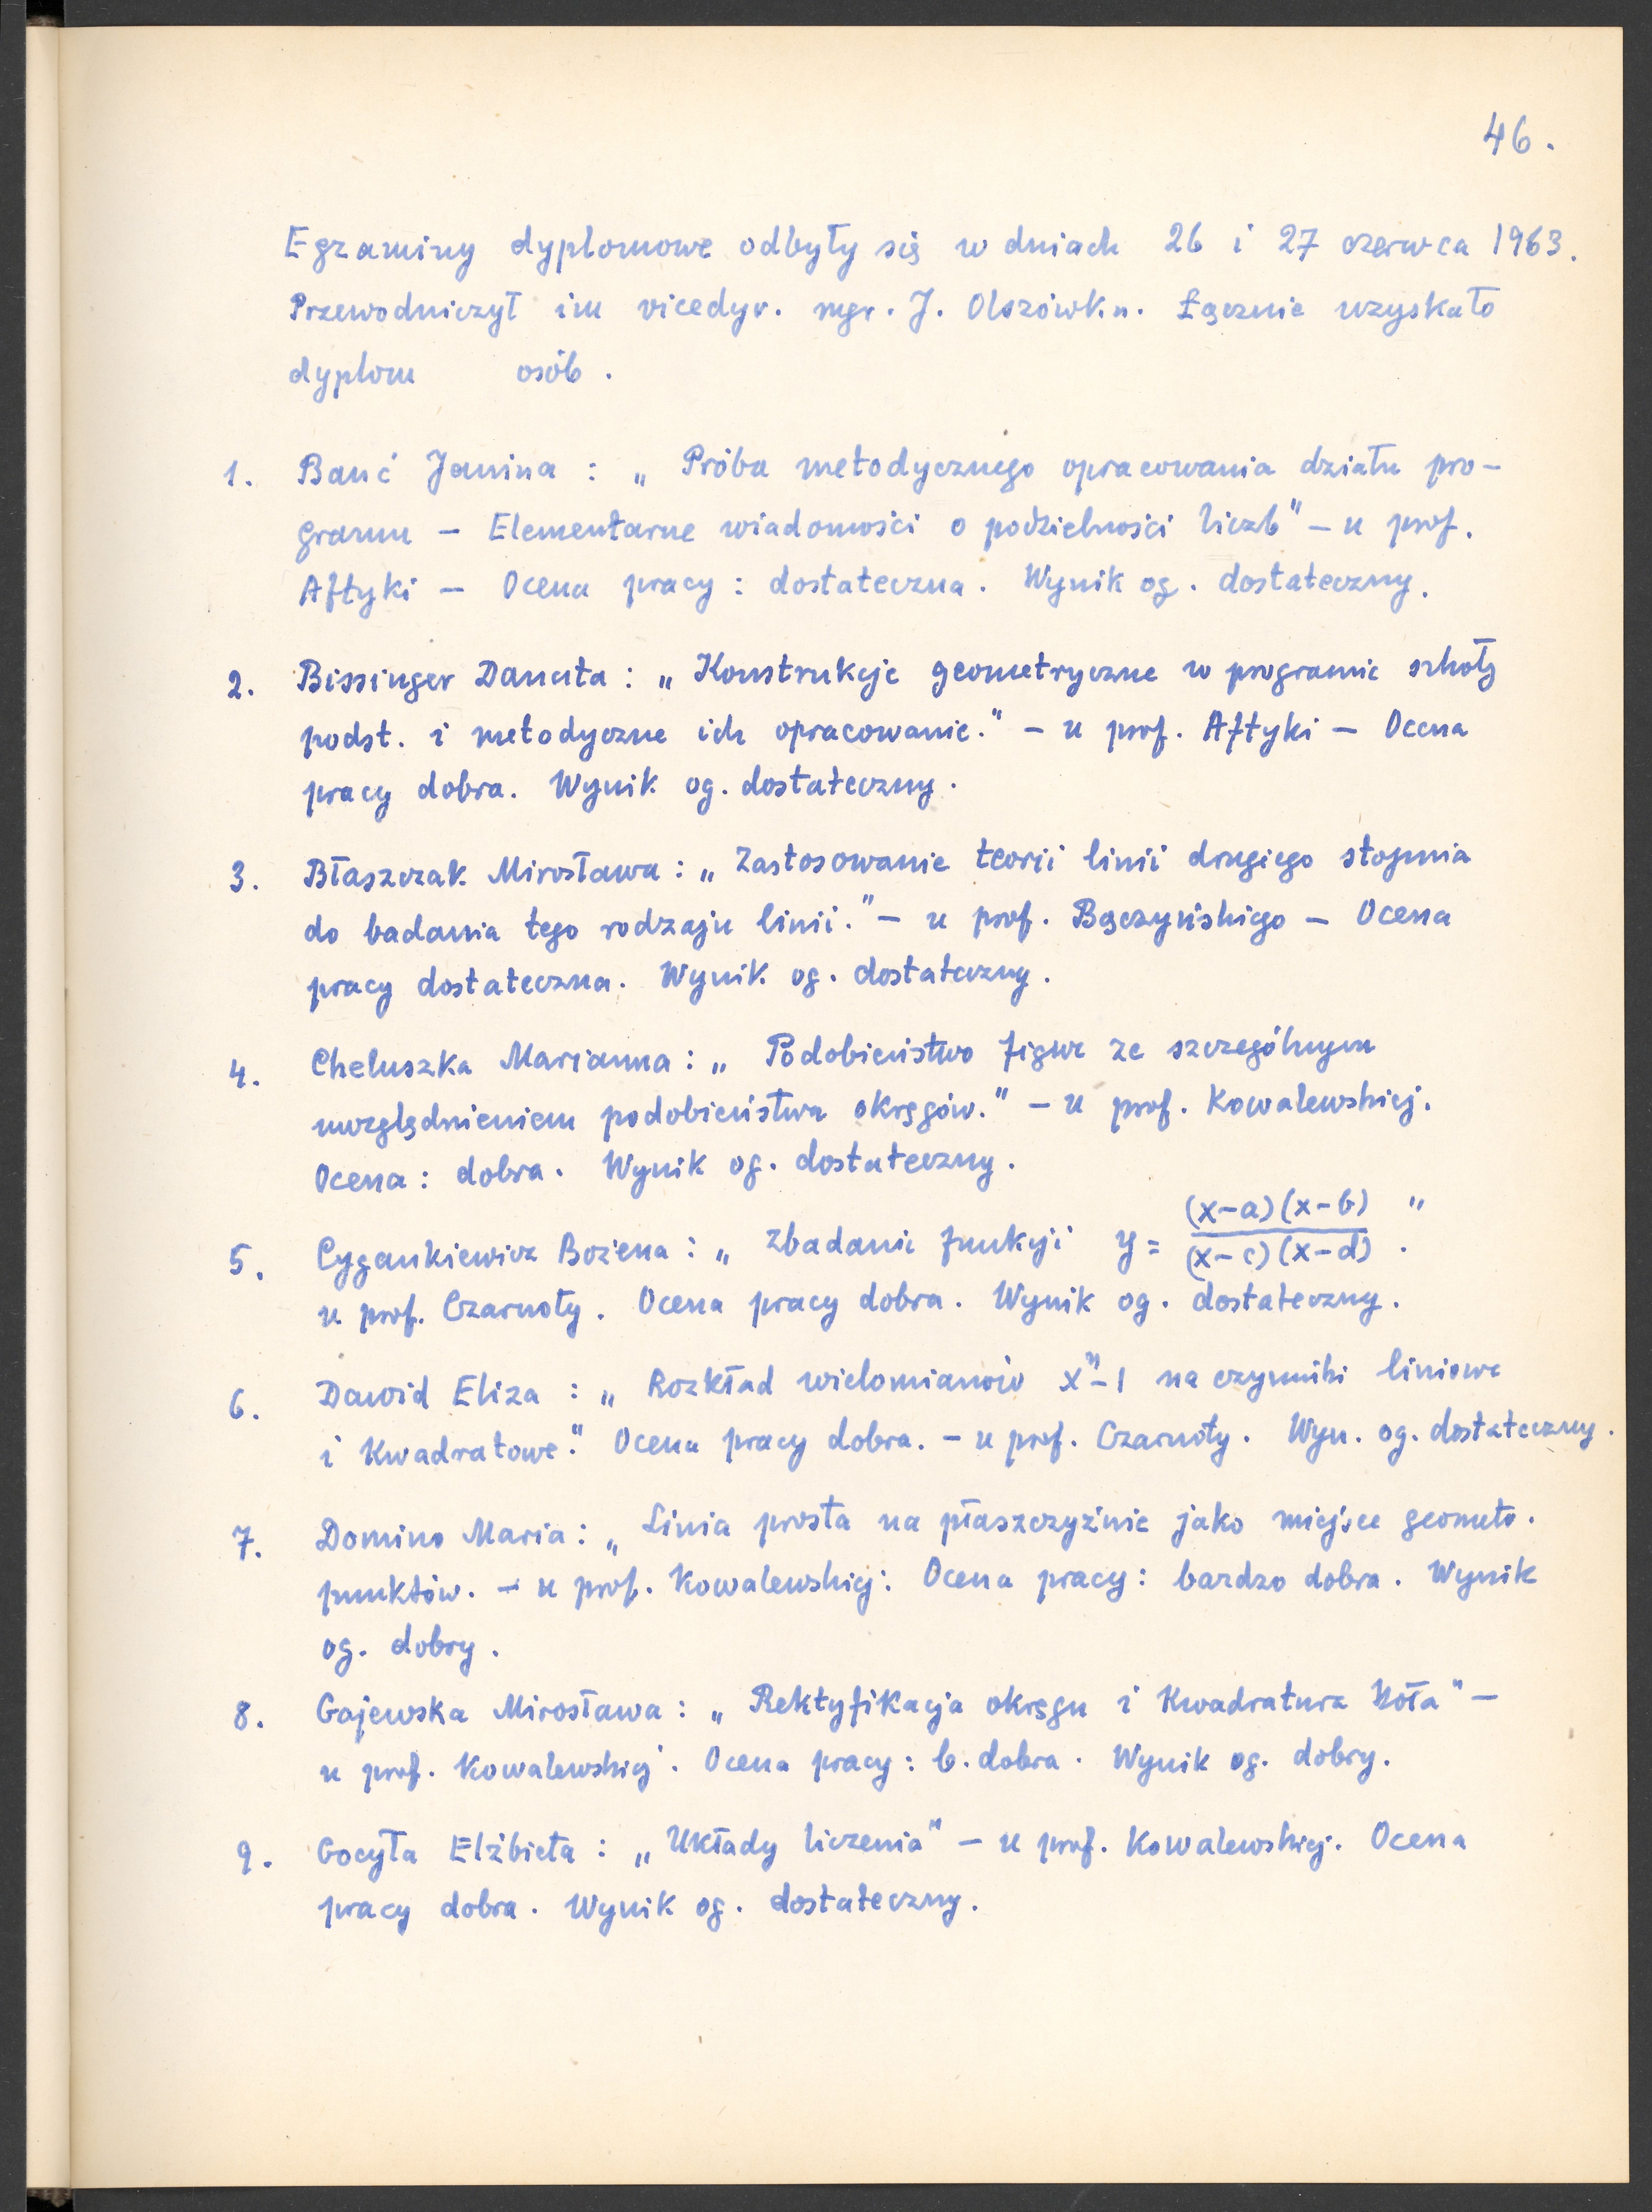 46.
Egzaminy dyplomowe odbyły się w dniach 26 i 27 czerwca 1963.
Przewodniczył im vicedyr. mgr. J. Olszówka. Łącznie uzyskało
dyplom osób.
1. Banć Janina : „ Próba metodycznego opracowania działu pro-
gramu – Elementarne wiadomości o podzielności liczb" – u prof.
Aftyki – Ocena pracy : dostateczna. Wynik og. dostateczny.
2. Bissinger Danuta : „ Konstrukcje geometryczne w programie szkoły
podst. i metodyczne ich opracowanie." – u prof. Aftyki – Ocena
pracy dobra. Wynik og. dostateczny.
3. Błaszczak Mirosława : „ Zastosowanie teorii linii drugiego stopnia
do badania tego rodzaju linii." – u prof. Bączyńskiego – Ocena
pracy dostateczna. Wynik og. dostateczny.
4. Cheluszka Marianna : „ Podobieństwo figur ze szczególnym
uwzględnieniem podobieństwa okręgów." – u prof. Kowalewskiej.
Ocena : dobra. Wynik og. dostateczny.
5. Cygankiewicz Bożena : „ Zbadanie funkcji y = (x-a)(x-b) / (x-c)(x-d) . "
u prof. Czarnoty. Ocena pracy dobra. Wynik og. dostateczny.
6. Dawid Eliza : „ Rozkład wielomianów xⁿ-1 na czynniki liniowe
i kwadratowe." Ocena pracy dobra. – u prof. Czarnoty. Wyn. og. dostateczny.
7. Domino Maria : „ Linia prosta na płaszczyźnie jako miejsce geometr.
punktów. – u prof. Kowalewskiej. Ocena pracy : bardzo dobra. Wynik
og. dobry.
8. Gajewska Mirosława : „ Rektyfikacja okręgu i kwadratura koła" –
u prof. Kowalewskiej. Ocena pracy : b. dobra. Wynik og. dobry.
9. Gocyła Elżbieta : „ Układy liczenia" – u prof. Kowalewskiej. Ocena
pracy dobra. Wynik og. dostateczny.